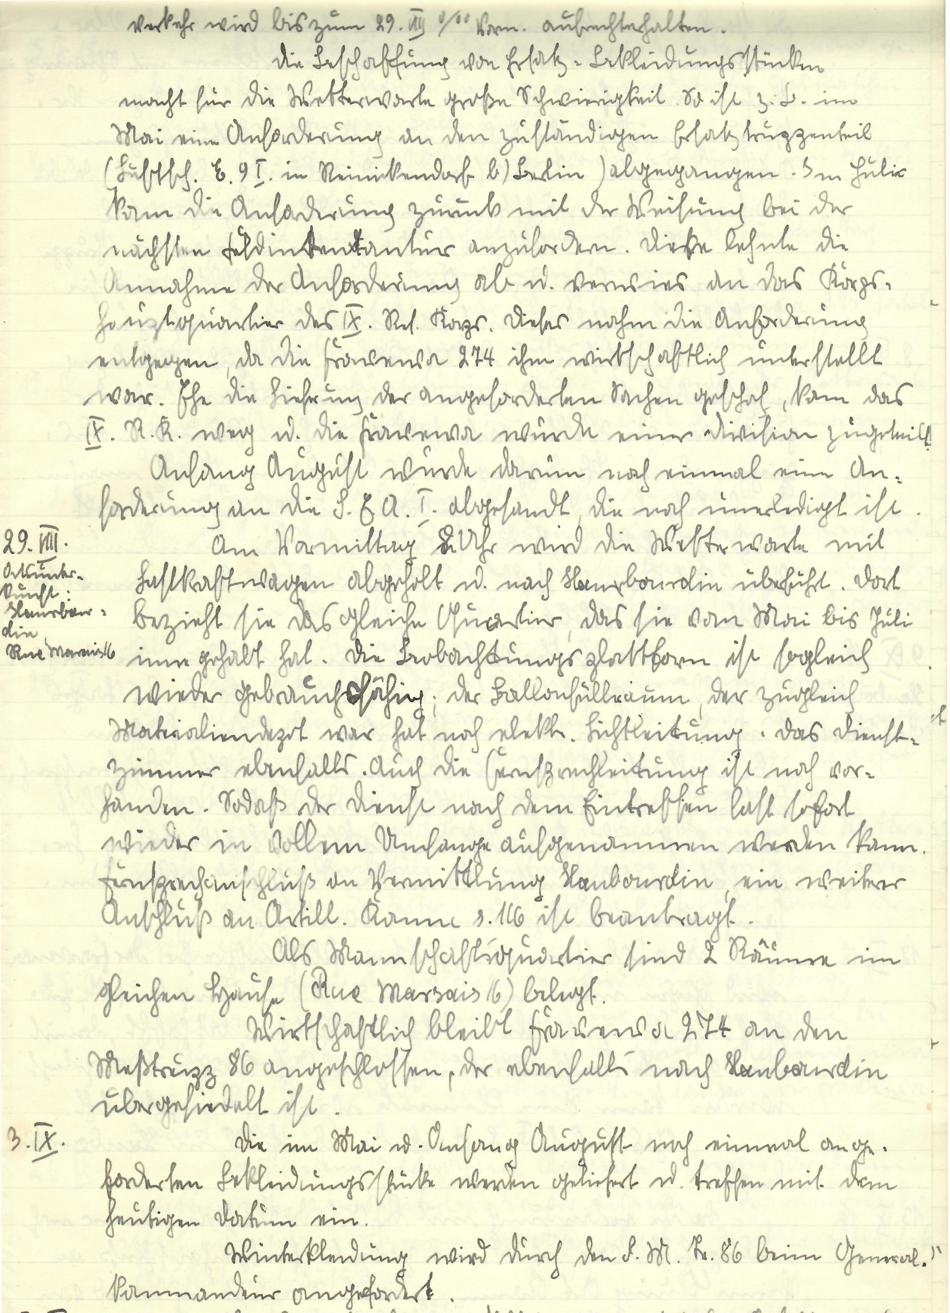 Verkehr wird bis zum 29. VIII 8/00 Vorm. aufrechterhalten.
Die Beschaffung von Ersatz-Bekleidungsstücken
macht für die Wetterwarte große Schwierigkeit. So ist z.B. im
Mai eine Anforderung an den zuständigen Ersatztruppenteil
(Luftsch. E. 9 I. in Reinickendorf b) Berlin) abgegangen. Im Juli
kam die Anforderung zurück mit der Weisung bei der
nächsten Feldintentantur anzufordern. Diese lehnte die
Annahme der Anforderung ab u. verwies an das Korps-
hauptquartier des IX. Res. Korps. Dieses nahm die Anforderung
entgegen, da die Frawewa 274 ihm wirtschaftlich unterstellt
war. Ehe die Lieferung der angeforderten Sachen geschah, kam das
IX. R.K. weg u. die Frawewa wurde einer Division zugeteilt.
Anfang August wurde darum noch einmal eine An-
forderung an die L. E. A. I. abgesandt, die noch unerledigt ist.
29. VIII.
Ortsunter-
kunft:
Haubour-
din
Rue Marsais 16
Am Vormittag 8 Uhr wird die Wetterwarte mit
Lastkraftwagen abgeholt u. nach Haubourdin überführt. Dort
bezieht sie das gleiche Quartier, das sie vom Mai bis Juli
inne gehabt hat. Die Beobachtungsplattform ist sogleich
wieder gebrauchsfähig; der Ballonfüllraum, der zugleich
Materialiendepot war hat noch elektr. Lichtleitung. Das Dienst-
zimmer ebenfalls. Auch die Fernsprechleitung ist noch vor-
handen. Sodaß der Dienst nach dem Eintreffen fast sofort
wieder in vollem Umfange aufgenommen werden kann.
Fernsprechanschluß an Vermittlung Haubourdin, ein weiterer
Anschluß an Artill. Komm. 116 ist beantragt.
Als Mannschaftsquartier sind 2 Räume im
gleichen Hause (Rue Marsais 16) belegt.
Wirtschaftlich bleibt Frawewa 274 an den
Meßtrupp 86 angeschlossen, der ebenfalls nach Haubourdin
übergesiedelt ist.
3. IX.
Die im Mai u. Anfang August noch einmal ange-
forderten Bekleidungsstücke werden geliefert u. treffen mit dem
heutigen Datum ein.
Winterkleidung wird durch den S. M. Tr. 86 beim General-
kommandeur angefordert.